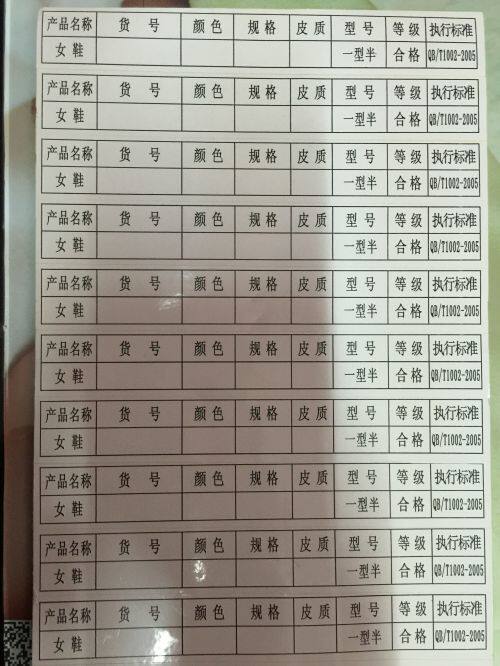 产品名称 货号 颜色 规格 皮质 型号 等级 执行标准
女鞋 一型半 合格 QB/T1002-2005
产品名称 货号 颜色 规格 皮质 型号 等级 执行标准
女鞋 一型半 合格 QB/T1002-2005
产品名称 货号 颜色 规格 皮质 型号 等级 执行标准
女鞋 一型半 合格 QB/T1002-2005
产品名称 货号 颜色 规格 皮质 型号 等级 执行标准
女鞋 一型半 合格 QB/T1002-2005
产品名称 货号 颜色 规格 皮质 型号 等级 执行标准
女鞋 一型半 合格 QB/T1002-2005
产品名称 货号 颜色 规格 皮质 型号 等级 执行标准
女鞋 一型半 合格 QB/T1002-2005
产品名称 货号 颜色 规格 皮质 型号 等级 执行标准
女鞋 一型半 合格 QB/T1002-2005
产品名称 货号 颜色 规格 皮质 型号 等级 执行标准
女鞋 一型半 合格 QB/T1002-2005
产品名称 货号 颜色 规格 皮质 型号 等级 执行标准
女鞋 一型半 合格 QB/T1002-2005
产品名称 货号 颜色 规格 皮质 型号 等级 执行标准
女鞋 一型半 合格 QB/T1002-2005